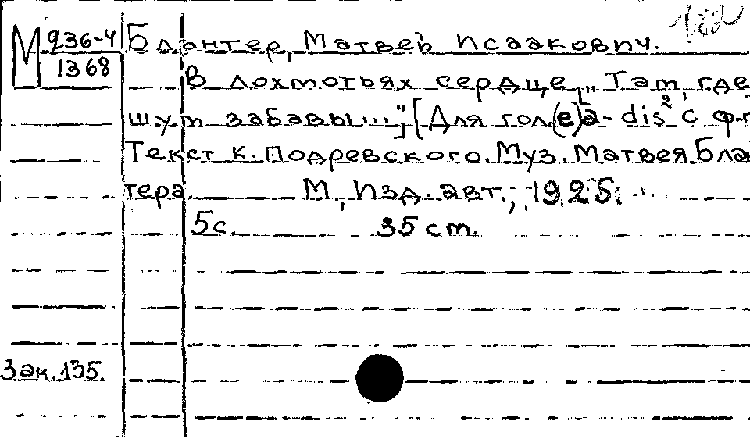 М 936-4
1368
Блантер, Матвей Исаакович.
В лохмотьях сердце. „Там, где
шум забавы..." [Для гол. (e) a - dis² с ф-п
Текст К. Подревского. Муз. Матвея Бла
тера М., Изд. авт., 1925.
5 с. 35 cm.
Зак. 135.